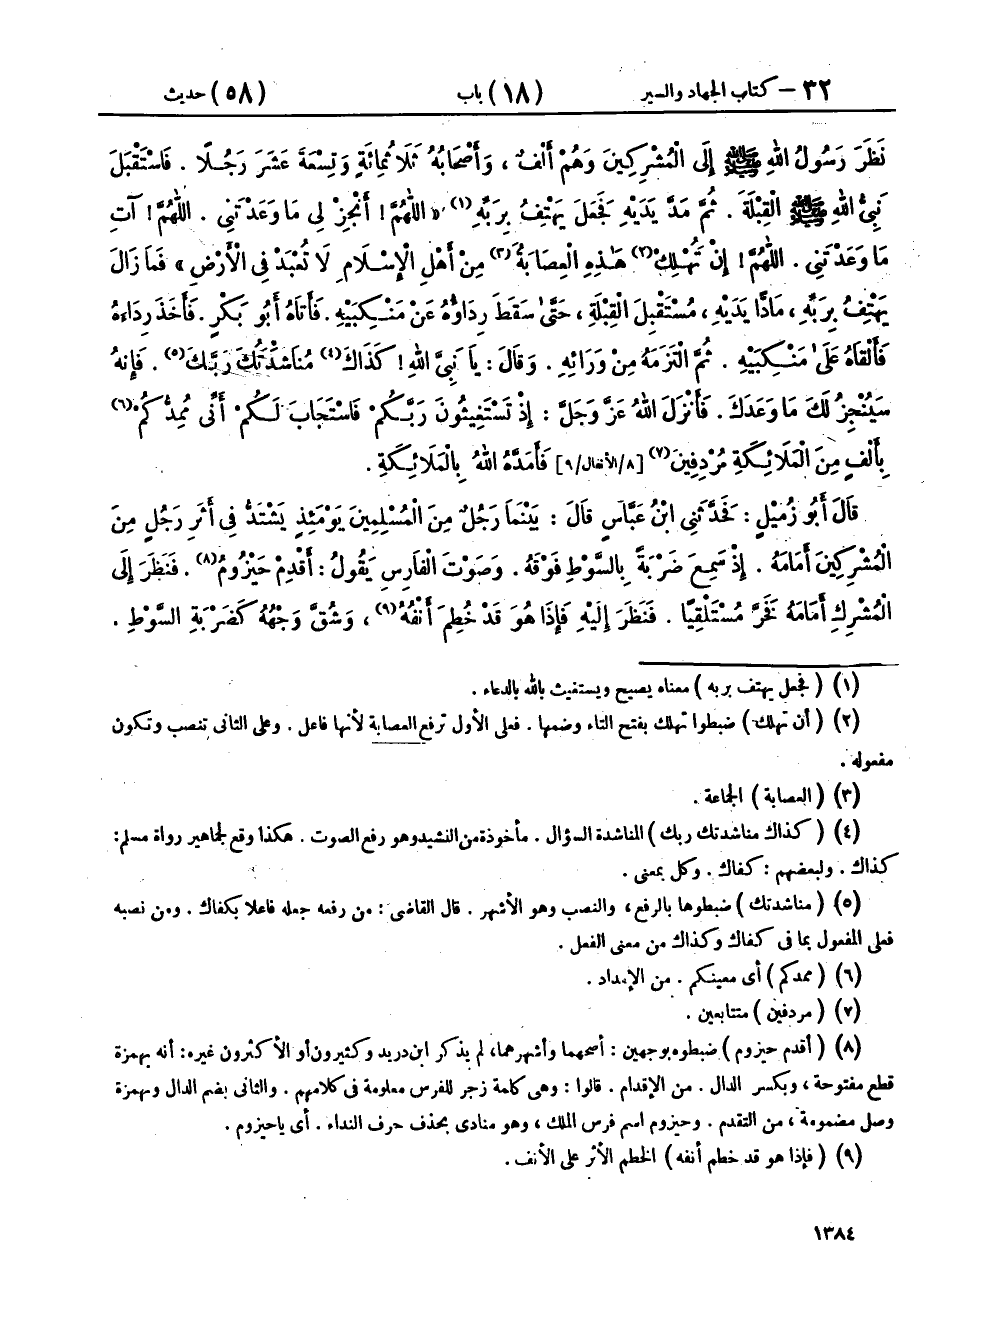 ٣٢ – كتاب الجهاد والسير (١٨) باب (٥٨) حديث
نَظَرَ رَسُولُ اللهِ ﷺ إِلَى الْمُشْرِكِينَ وَهُمْ أَلْفٌ ، وَأَصْحَابُهُ ثَلَاثُمِائَةٍ وَتِسْعَةَ عَشَرَ رَجُلًا . فَاسْتَقْبَلَ
نَبِيُّ اللهِ ﷺ الْقِبْلَةَ . ثُمَّ مَدَّ يَدَيْهِ فَجَعَلَ يَهْتِفُ بِرَبِّهِ(١) « اللَّهُمَّ ! أَنْجِزْ لِي مَا وَعَدْتَنِي . اللَّهُمَّ ! آتِ
مَا وَعَدْتَنِي . اللَّهُمَّ ! إِنْ تُهْلِكْ(٢) هَٰذِهِ الْعِصَابَةَ(٣) مِنْ أَهْلِ الْإِسْلَامِ لَا تُعْبَدْ فِي الْأَرْضِ » فَمَا زَالَ
يَهْتِفُ بِرَبِّهِ ، مَادًّا يَدَيْهِ ، مُسْتَقْبِلَ الْقِبْلَةِ ، حَتَّىٰ سَقَطَ رِدَاؤُهُ عَنْ مَنْكِبَيْهِ . فَأَتَاهُ أَبُو بَكْرٍ . فَأَخَذَ رِدَاءَهُ
فَأَلْقَاهُ عَلَىٰ مَنْكِبَيْهِ . ثُمَّ الْتَزَمَهُ مِنْ وَرَائِهِ . وَقَالَ : يَا نَبِيَّ اللهِ ! كَذَاكَ(٤) مُنَاشَدَتُكَ رَبَّكَ(٥) . فَإِنَّهُ
سَيُنْجِزُ لَكَ مَا وَعَدَكَ . فَأَنْزَلَ اللهُ عَزَّ وَجَلَّ : إِذْ تَسْتَغِيثُونَ رَبَّكُمْ فَاسْتَجَابَ لَكُمْ أَنِّي مُمِدُّكُمْ(٦)
بِأَلْفٍ مِنَ الْمَلَائِكَةِ مُرْدِفِينَ(٧) [٨/الأنفال/٩] فَأَمَدَّهُ اللهُ بِالْمَلَائِكَةِ .
قَالَ أَبُو زُمَيْلٍ : فَحَدَّثَنِي ابْنُ عَبَّاسٍ قَالَ : بَيْنَمَا رَجُلٌ مِنَ الْمُسْلِمِينَ يَوْمَئِذٍ يَشْتَدُّ فِي أَثَرِ رَجُلٍ مِنَ
الْمُشْرِكِينَ أَمَامَهُ . إِذْ سَمِعَ ضَرْبَةً بِالسَّوْطِ فَوْقَهُ . وَصَوْتَ الْفَارِسِ يَقُولُ : أَقْدِمْ حَيْزُومُ(٨) . فَنَظَرَ إِلَى
الْمُشْرِكِ أَمَامَهُ فَخَرَّ مُسْتَلْقِيًا . فَنَظَرَ إِلَيْهِ فَإِذَا هُوَ قَدْ خُطِمَ أَنْفُهُ(٩) ، وَشُقَّ وَجْهُهُ كَضَرْبَةِ السَّوْطِ .
(١) ( فجعل يهتف بربه ) معناه يصيح ويستغيث بالله بالدعاء .
(٢) ( أن تهلك ) ضبطوا تهلك بفتح التاء وضمها . فعلى الأول ترفع العصابة لأنها فاعل . وعلى الثاني تنصب وتكون
مفعوله .
(٣) ( العصابة ) الجماعة .
(٤) ( كذاك مناشدتك ربك ) المناشدة السؤال . مأخوذة من النشيد وهو رفع الصوت . هكذا وقع لجماهير رواة مسلم :
كذاك . ولبعضهم : كفاك . وكل بمعنى .
(٥) ( مناشدتك ) ضبطوها بالرفع ، والنصب وهو الأشهر . قال القاضى : من رفعه جعله فاعلا بكفاك . ومن نصبه
فعلى المفعول بما فى كفاك وكذاك من معنى الفعل .
(٦) ( ممدكم ) أى معينكم . من الإمداد .
(٧) ( مردفين ) متتابعين .
(٨) ( أقدم حيزوم ) ضبطوه بوجهين : أصحهما وأشهرهما، لم يذكر ابن دريد وكثيرون أو الأكثرون غيره : أنه بهمزة
قطع مفتوحة ، وبكسر الدال . من الإقدام . قالوا : وهى كلمة زجر للفرس معلومة فى كلامهم . والثانى بضم الدال وبهمزة
وصل مضمومة ، من التقدم . وحيزوم اسم فرس الملك ، وهو منادى بحذف حرف النداء . أى ياحيزوم .
(٩) ( فإذا هو قد خطم أنفه ) الخطم الأثر على الأنف .
١٣٨٤